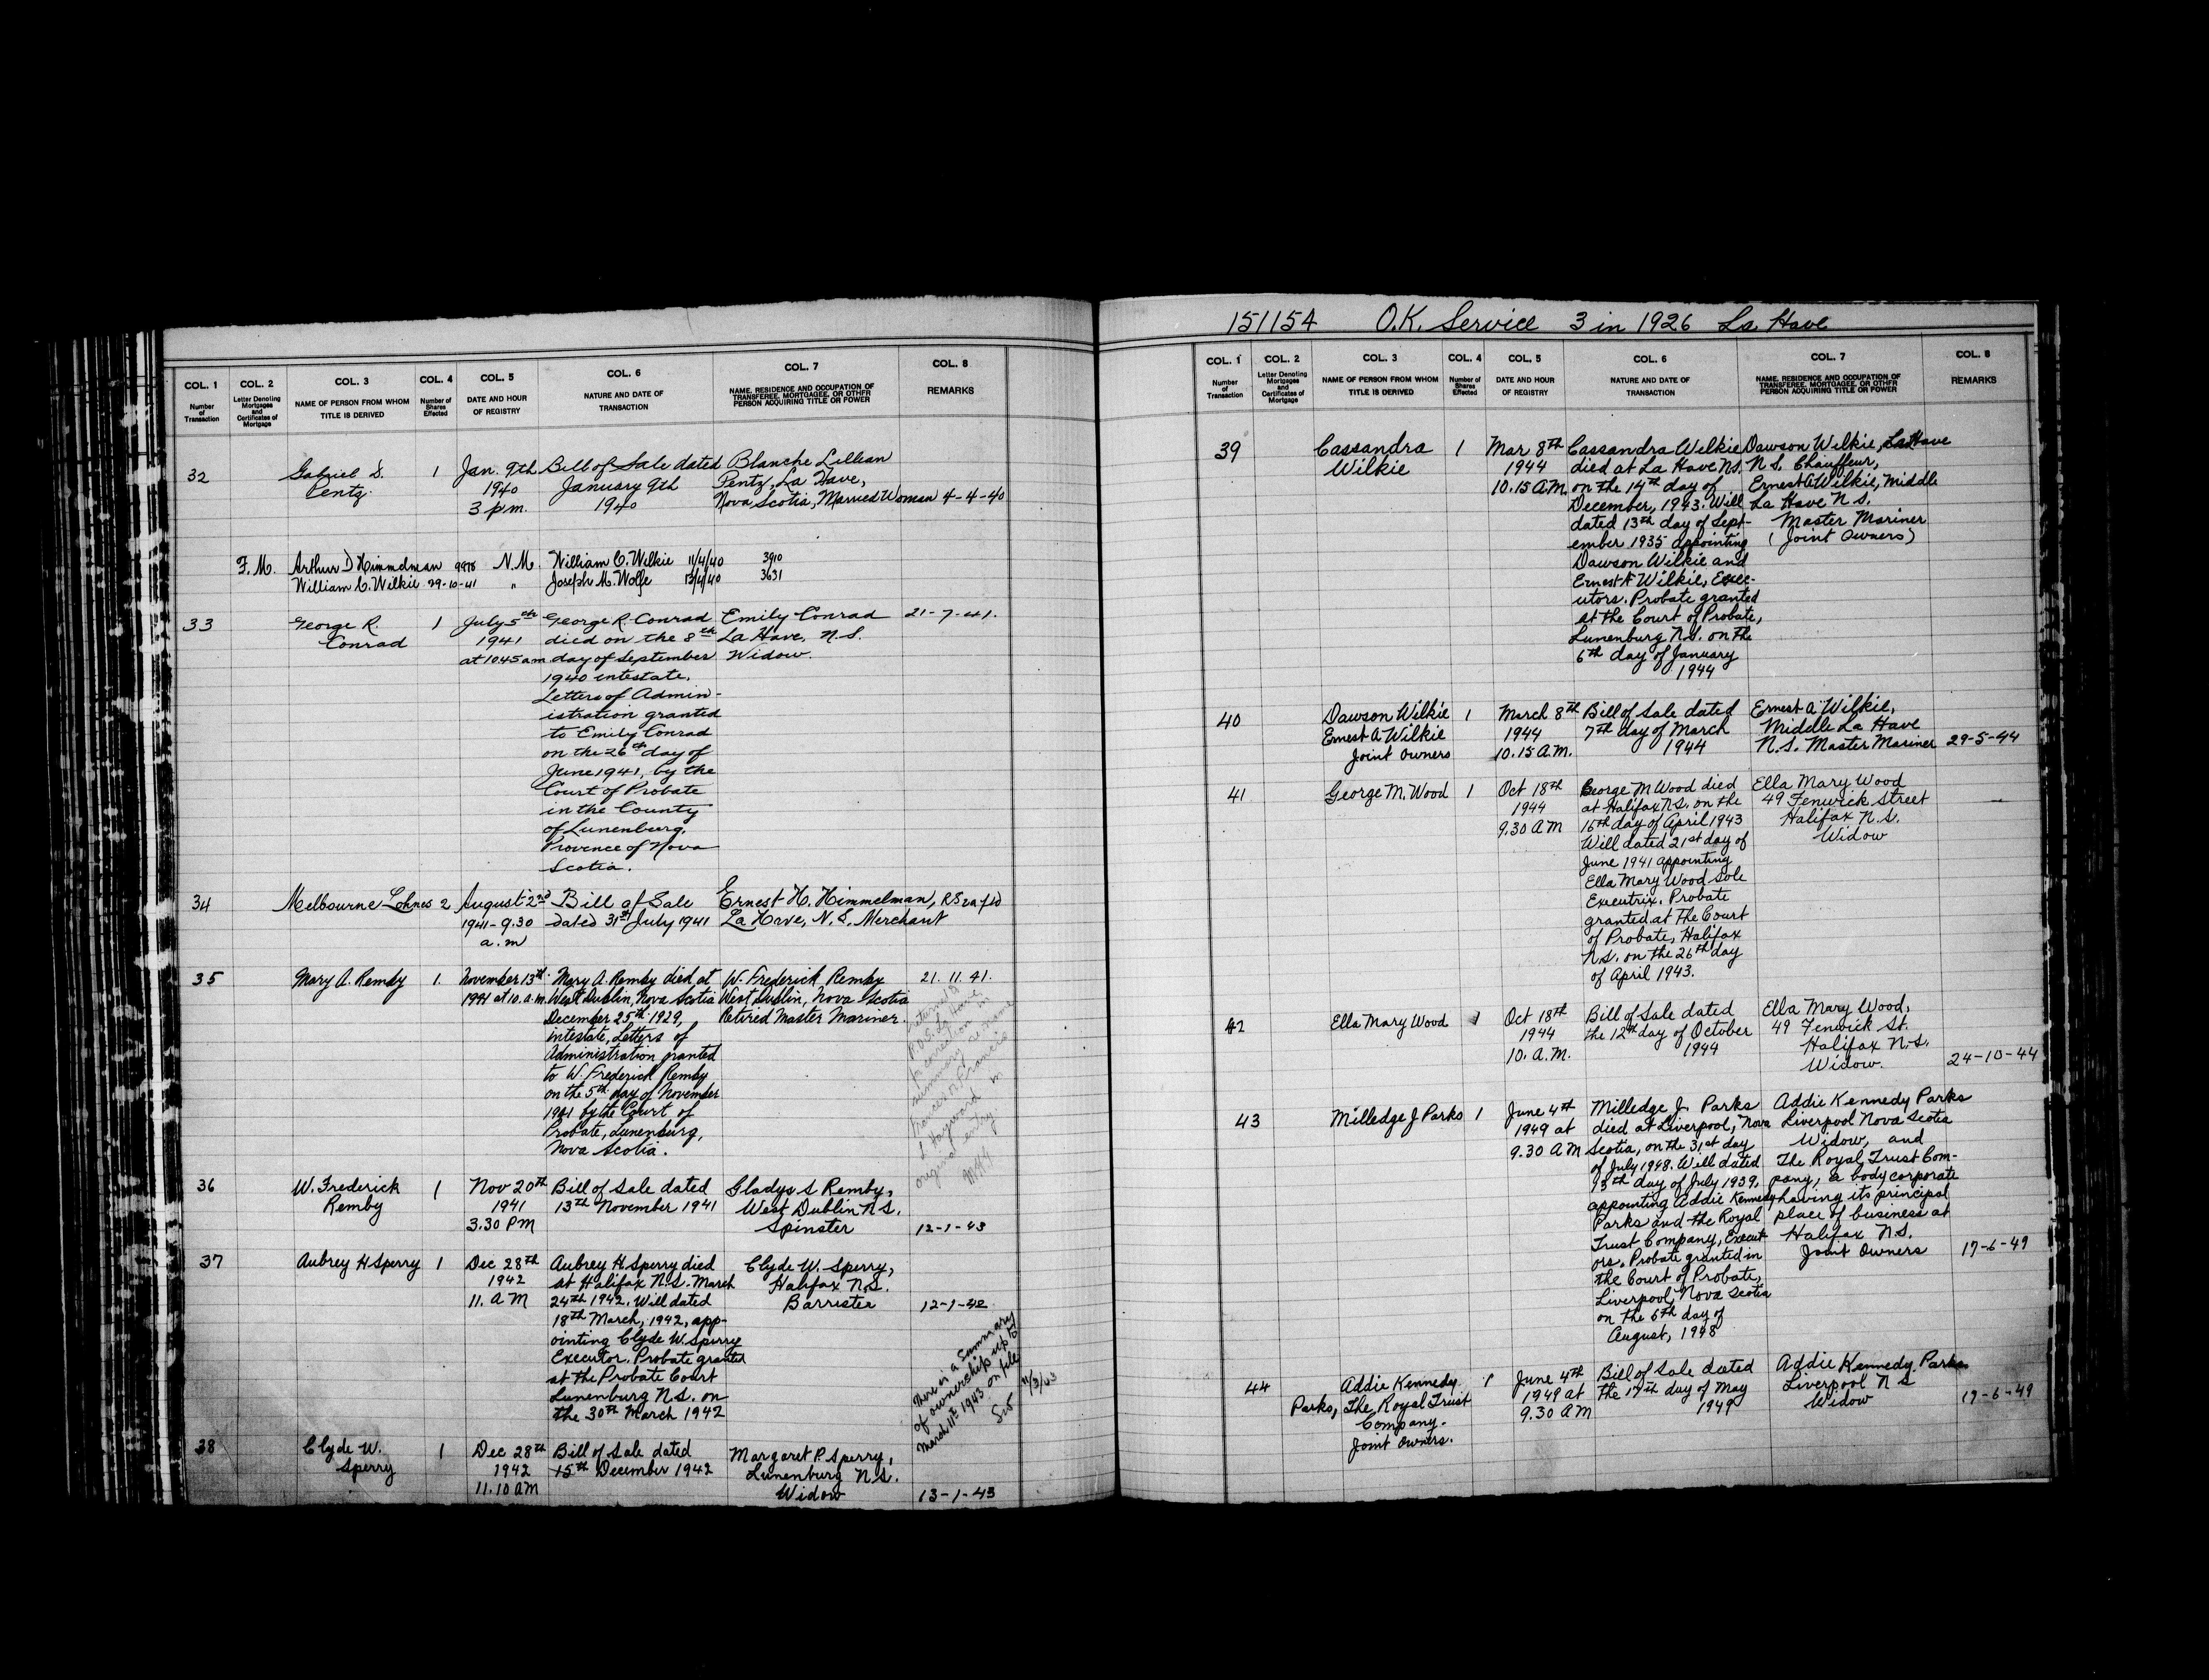 COL. 1
Number
of
Transaction
COL. 2
Letter Denoting
Mortgages
and
Certificates of
Mortgage
COL. 3
NAME OF PERSON FROM WHOM
TITLE IS DERIVED
COL. 4
Number of
Shares
Effected
COL. 5
DATE AND HOUR
OF REGISTRY
COL. 6
NATURE AND DATE OF
TRANSACTION
COL. 7
NAME, RESIDENCE AND OCCUPATION OF
TRANSFEREE, MORTGAGEE, OR OTHER
PERSON ACQUIRING TITLE OR POWER
COL. 8
REMARKS
32
Gabriel D.
Pentz.
1
Jan. 9th
1940
3 p.m.
Bill of Sale dated
January 9th
1940
Blanche Lillian
Pentz, La Have,
Nova Scotia, Married Woman
4-4-40
F.M. Arthur D Himmelman 9978 N.M. William C. Wilkie 11/4/40 3910
William C. Wilkie 29-10-41 " Joseph M. Wolfe 13/4/40 3631
33
George R.
Conrad
1
July 5th
1941
at 10 45 am
George R. Conrad
died on the 8th
day of September
1940 intestate.
Letters of Admin-
istration granted
to Emily Conrad
on the 26th day of
June 1941, by the
Court of Probate
in the County
of Lunenburg,
Provence of Nova
Scotia.
Emily Conrad
La Have, N.S.
Widow.
21-7-41.
34
Melbourne Lohnes
2
August 2nd
1941 - 9.30
a.m
Bill of Sale
dated 31st July 1941
Ernest H. Himmelman,
La Have, N.S. Merchant
35
Mary A. Remby
1.
November 13th
1941 at 10. a.m.
Mary A. Remby died at
West Dublin, Nova Scotia
December 25th 1929,
intestate, Letters of
Administration granted
to W. Frederick Remby
on the 5th day of November
1941 by the Court of
Probate, Lunenburg,
Nova Scotia.
W. Frederick Remby
West Dublin, Nova Scotia
Retired Master Mariner.
21. 11. 41.
36
W. Frederick
Remby
1
Nov 20th
1941
3.30 PM
Bill of Sale dated
13th November 1941
Gladys S Remby,
West Dublin N.S.
Spinster
12-1-43
37
Aubrey H Sperry
1
Dec 28th
1942
11. A M
Aubrey H. Sperry died
at Halifax N.S. March
24th 1942. Will dated
18th March, 1942, app-
ointing Clyde W. Sperry
Executor. Probate granted
at the Probate Court
Lunenburg N.S. on
the 30th March 1942
Clyde W. Sperry,
Halifax N.S.
Barrister
12-1-42
There is a Summary
of ownership up to
March 11th 1943 on file
11/3/43
38
Clyde W.
Sperry
1
Dec 28th
1942
11.10 AM
Bill of Sale dated
15th December 1942
Margaret P. Sperry,
Lunenburg N.S.
Widow
13-1-43
151154 O.K. Service 3 in 1926 La Have
COL. 1
Number
of
Transaction
COL. 2
Letter Denoting
Mortgages
and
Certificates of
Mortgage
COL. 3
NAME OF PERSON FROM WHOM
TITLE IS DERIVED
COL. 4
Number of
Shares
Effected
COL. 5
DATE AND HOUR
OF REGISTRY
COL. 6
NATURE AND DATE OF
TRANSACTION
COL. 7
NAME, RESIDENCE AND OCCUPATION OF
TRANSFEREE, MORTGAGEE, OR OTHER
PERSON ACQUIRING TITLE OR POWER
COL. 8
REMARKS
39
Cassandra
Wilkie
1
Mar 8th
1944
10.15 A.M.
Cassandra Wilkie
died at La Have N.S.
on the 14th day of
December, 1943. Will
dated 13th day of Sept-
ember 1935 appointing
Dawson Wilkie and
Ernest A Wilkie, Exec-
utors. Probate granted
at the Court of Probate,
Lunenburg N.S. on the
6th day of January
1944
Dawson Wilkie, La Have
N.S. Chauffeur,
Ernest A Wilkie, Middle
La Have N.S.
Master Mariner
(Joint Owners)
40
Dawson Wilkie
Ernest A Wilkie
Joint Owners
1
March 8th
1944
10.15 A.M.
Bill of Sale dated
7th day of March
1944
Ernest A Wilkie,
Middle La Have
N.S. Master Mariner
29-5-44
41
George M. Wood
1
Oct 18th
1944
9.30 A M
George M Wood died
at Halifax N.S. on the
16th day of April 1943
Will dated 21st day of
June 1941 appointing
Ella Mary Wood sole
Executrix. Probate
granted at the Court
of Probate, Halifax
N.S. on the 26th day
of April 1943.
Ella Mary Wood
49 Fenwick Street
Halifax N.S.
Widow
—
42
Ella Mary Wood
1
Oct 18th
1944
10. A.M.
Bill of Sale dated
the 12th day of October
1944
Ella Mary Wood,
49 Fenwick St.
Halifax N.S.
Widow.
24-10-44
43
Milledge J Parks
1
June 4th
1949 at
9.30 A M
Milledge J. Parks
died at Liverpool, Nova
Scotia, on the 31st day
of July 1948. Will dated
13th day of July 1939,
appointing Addie Kennedy
Parks and the Royal
Trust Company, Execut-
ors. Probate granted in
the Court of Probate,
Liverpool, Nova Scotia
on the 6th day of
August, 1948
Addie Kennedy Parks
Liverpool Nova Scotia
Widow, and
The Royal Trust Com-
pany, a body corporate
having its principal
place of business at
Halifax N.S.
Joint Owners
17-6-49
44
Addie Kennedy
Parks, The Royal Trust
Company.
Joint Owners.
1
June 4th
1949 at
9.30 A M
Bill of Sale dated
the 17th day of May
1949
Addie Kennedy Parks
Liverpool N S
Widow
17-6-49